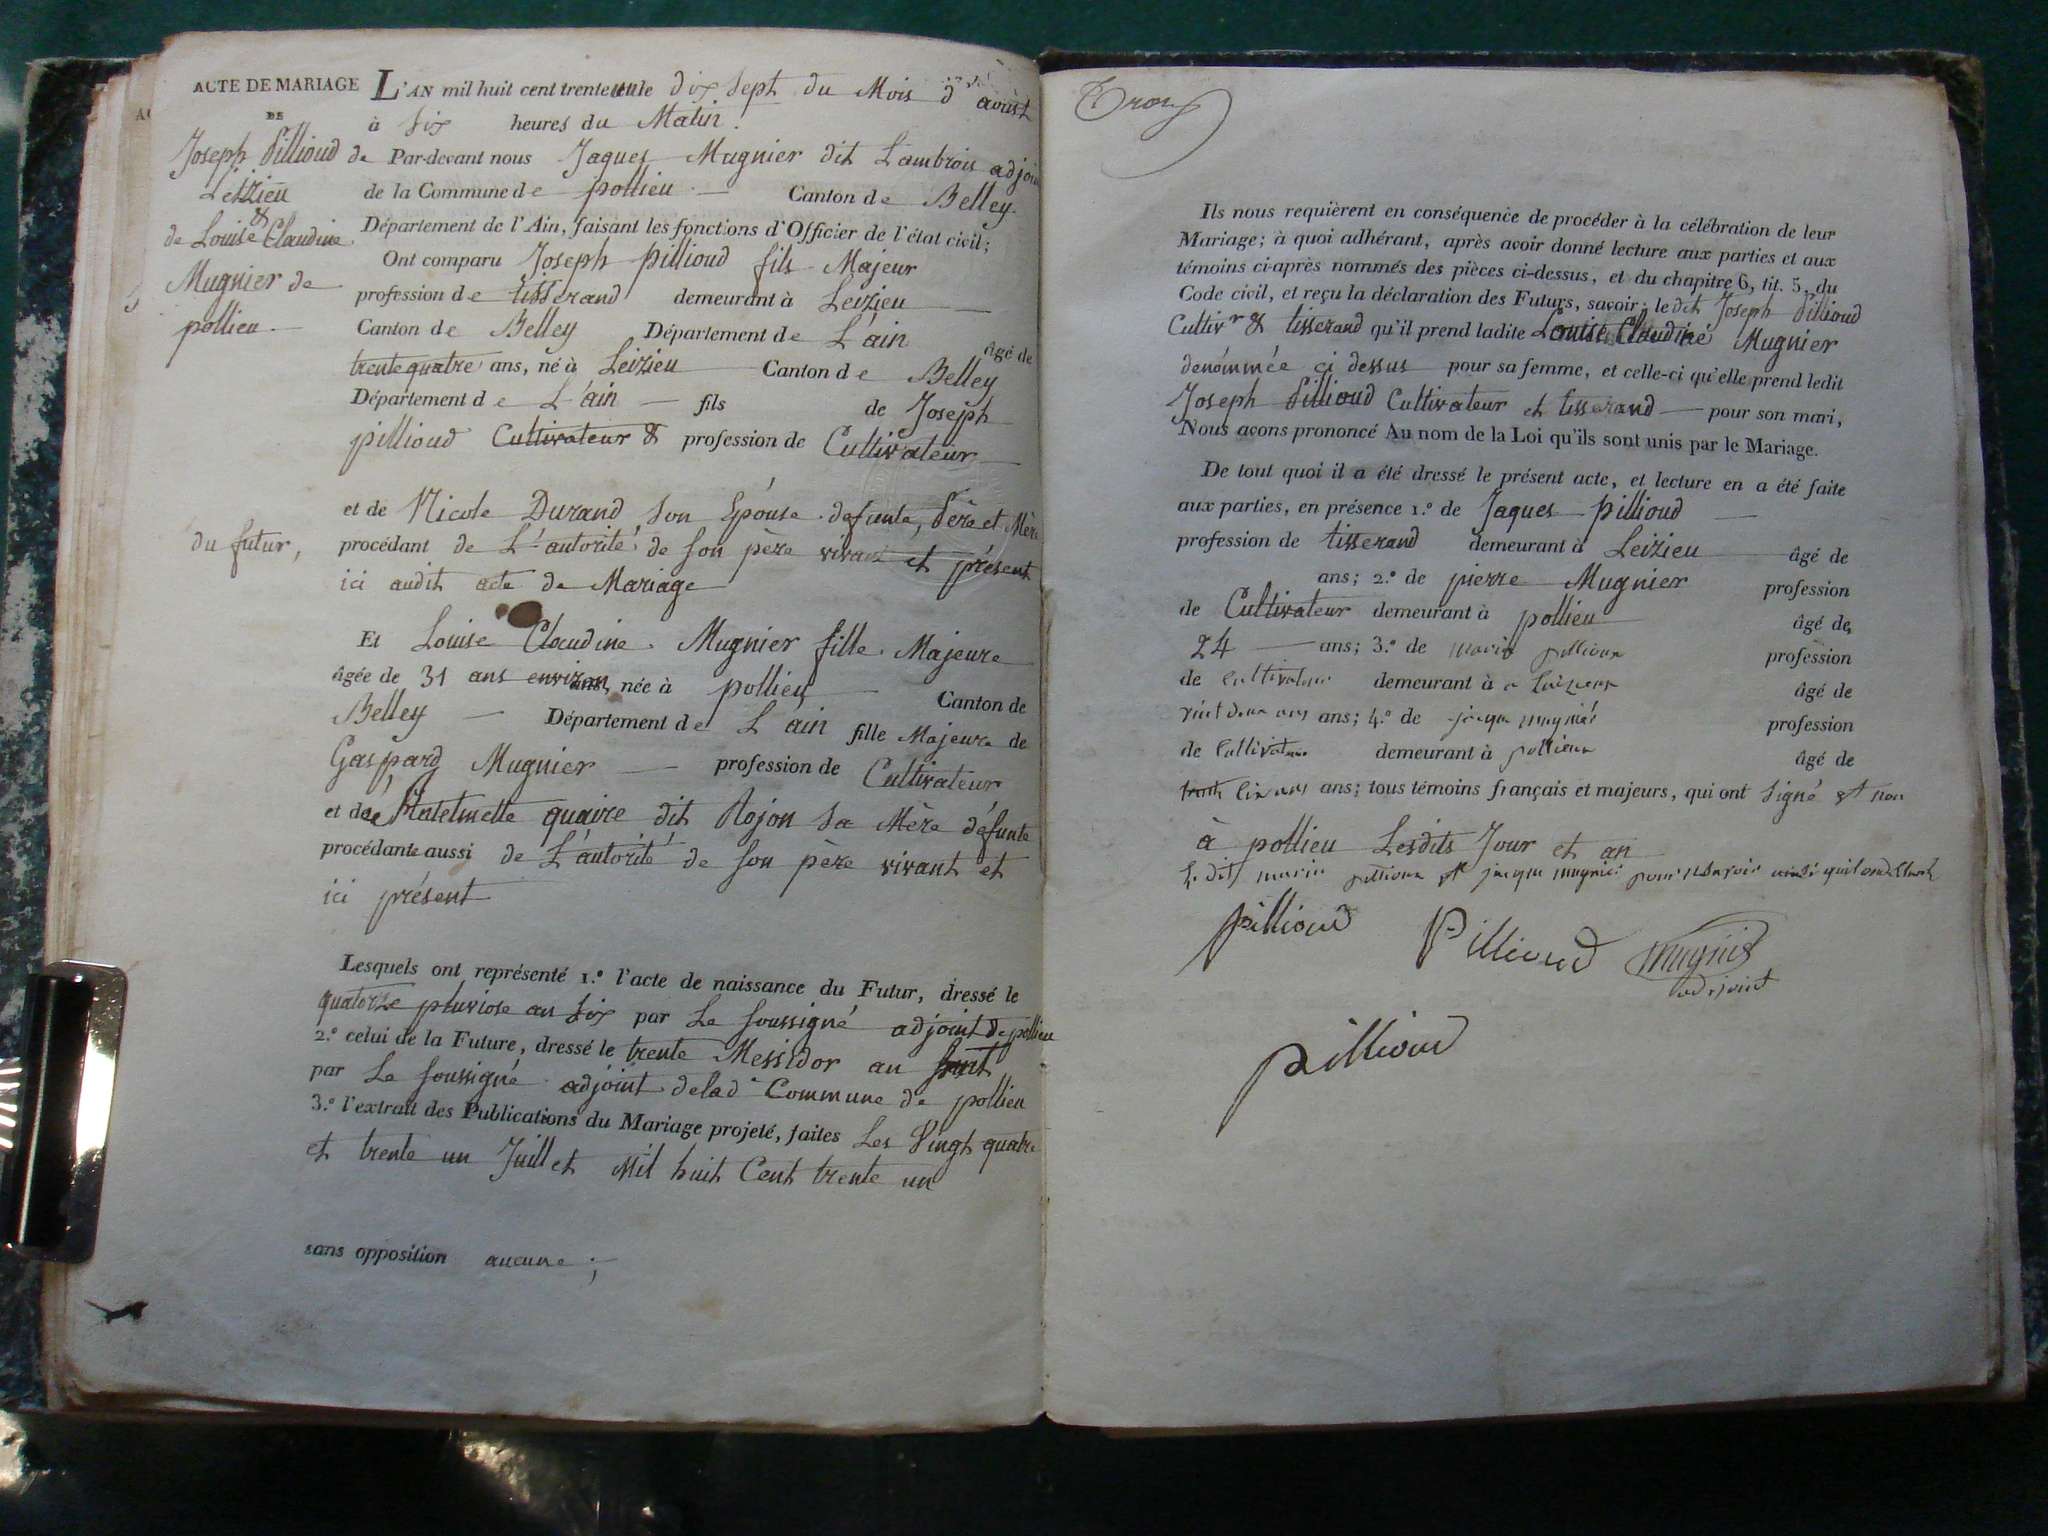 ACTE DE MARIAGE
DE
Joseph Pillioud de
Leizieu
&
de Louise Claudine
Mugnier de
pollieu.
du futur,
L'AN mil huit cent trente un le dix Sept du Mois d'aoust
à six heures du Matin.
Par-devant nous Jaques Mugnier dit Lambrois adjoint
de la Commune de pollieu Canton de Belley.
Département de l'Ain, faisant les fonctions d'Officier de l'état civil;
Ont comparu Joseph pillioud fils Majeur
profession de tisserand demeurant à Leizieu
Canton de Belley Département de L'ain âgé de
trente quatre ans, né à Leizieu Canton de Belley
Département de L'ain fils de Joseph
pillioud Cultivateur & profession de Cultivateur
et de Nicole Durand Son Epouse defunte, Père et Mère
procédant de L'autorité de Son père vivant et présent
ici audit acte de Mariage
Et Louise Claudine Mugnier fille Majeure
âgée de 31 ans environ ans, née à pollieu Canton de
Belley Département de L'ain fille Majeure de
Gaspard Mugnier profession de Cultivateur
et de quaire dit Rojon Sa Mère défunte
procédante aussi de L'autorité de Son père vivant et
ici présent
Lesquels ont représenté 1.° l'acte de naissance du Futur, dressé le
quatorze pluviose an Six par Le Soussigné adjoint de pollieu
2.° celui de la Future, dressé le trente Messidor an
par Le Soussigné adjoint de lad.e Commune de pollieu
3.° l'extrait des Publications du Mariage projeté, faites Les Vingt quatre
et trente un Juillet Mil huit Cent trente un
sans opposition aucune ;
Ils nous requièrent en conséquence de procéder à la célébration de leur
Mariage; à quoi adhérant, après avoir donné lecture aux parties et aux
témoins ci-après nommés des pièces ci-dessus, et du chapitre 6, tit. 5, du
Code civil, et reçu la déclaration des Futurs, savoir: le dit Joseph Pillioud
Cultiv.r & tisserand qu'il prend ladite Louise Claudine Mugnier
denómmée ci dessus pour sa femme, et celle-ci qu'elle prend ledit
Joseph Pillioud Cultivateur et tisserand pour son mari,
Nous avons prononcé Au nom de la Loi qu'ils sont unis par le Mariage.
De tout quoi il a été dressé le présent acte, et lecture en a été faite
aux parties, en présence 1.° de Jaques pillioud
profession de tisserand demeurant à Leizieu âgé de
ans; 2.° de pierre Mugnier profession
de Cultivateur demeurant à pollieu âgé de
24 ans; 3.° de marin pillioux profession
de cultivateur demeurant à âgé de
vint deux ans ans; 4.° de jaque mugnié profession
de cultivateur demeurant à pollieux âgé de
trente six ans ans; tous témoins français et majeurs, qui ont Signé et non
à pollieu Lesdits Jour et an
le dit marin pillioux et jaque mugnié pour ne savoir
pillioud Pillioud mugnié
adjoint
pillioud